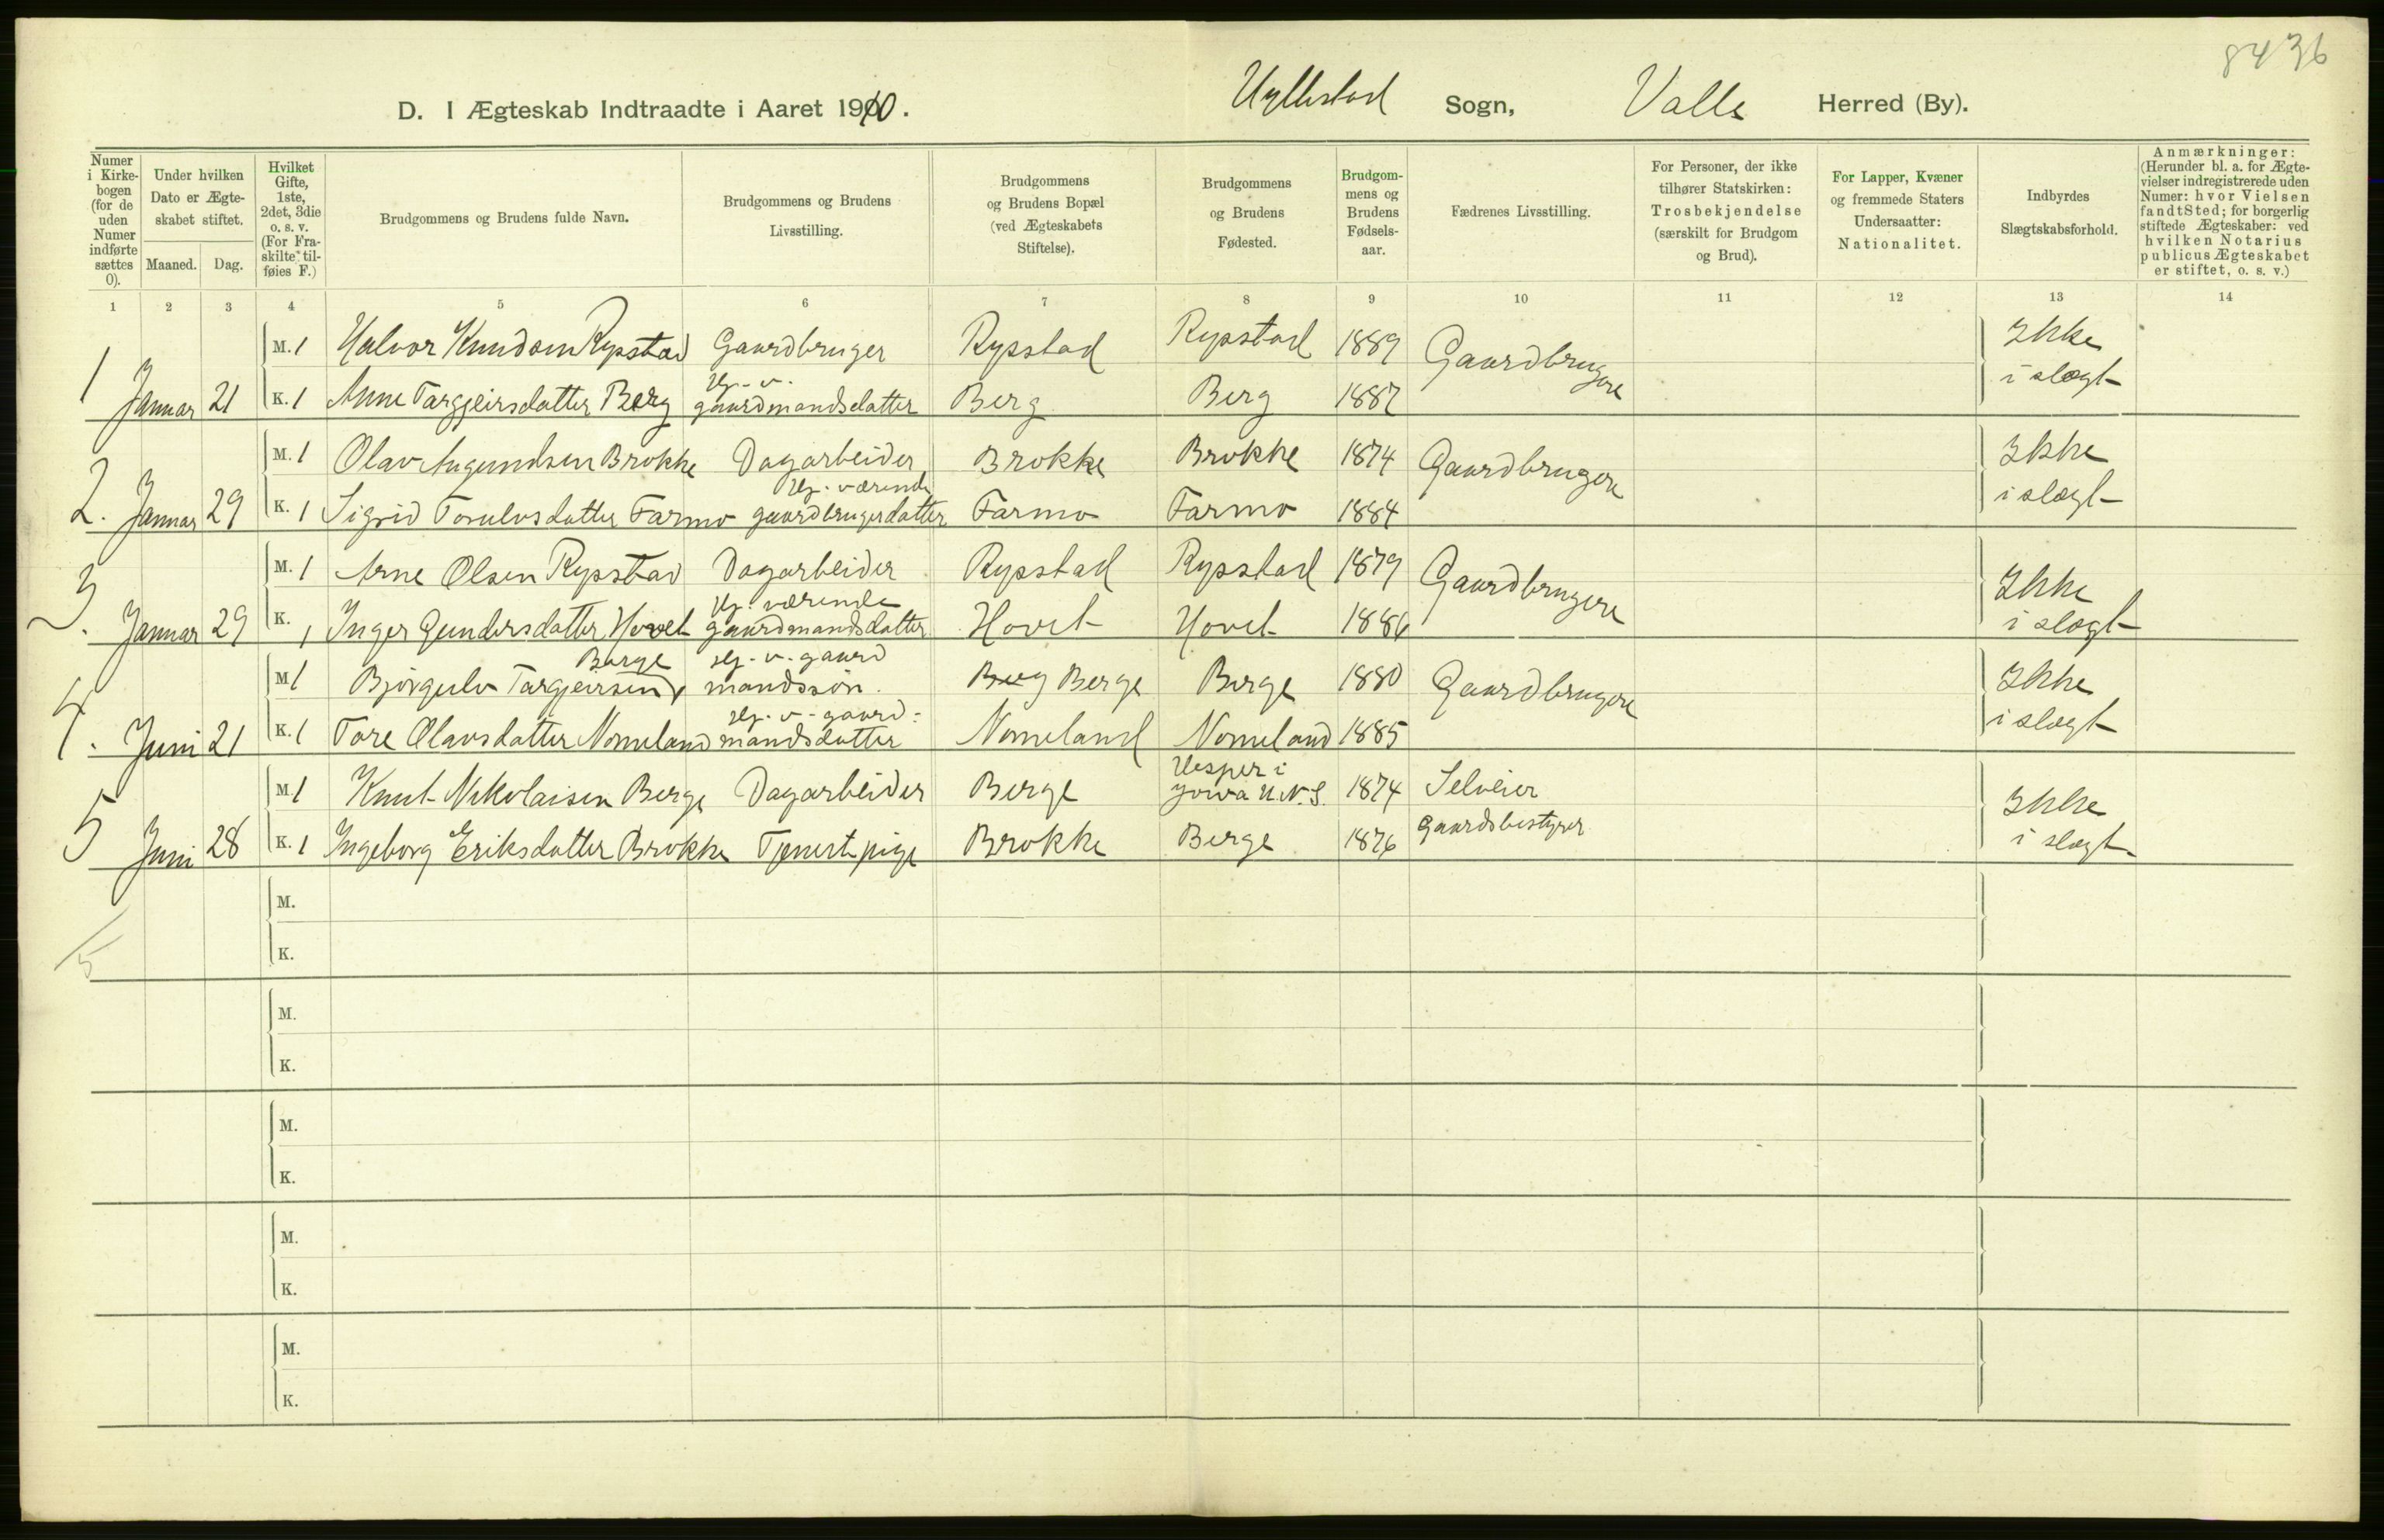 8436
D. I Ægteskab Indtraadte i Aaret 1910. Hyllestad Sogn, Valle Herred (By).
Numer i Kirkebogen (for de uden Numer indførte sættes 0).
Under hvilken Dato er Ægteskabet stiftet.
Maaned. Dag.
Hvilket Gifte, 1ste, 2det, 3die o. s. v. (For Fraskilte tilføies F.)
Brudgommens og Brudens fulde Navn.
Brudgommens og Brudens Livsstilling.
Brudgommens og Brudens Bopæl (ved Ægteskabets Stiftelse).
Brudgommens og Brudens Fødested.
Brudgommens og Brudens Fødselsaar.
Fædrenes Livsstilling.
For Personer, der ikke tilhører Statskirken: Trosbekjendelse (særskilt for Brudgom og Brud).
For Lapper, Kvæner og fremmede Staters Undersaatter: Nationalitet.
Indbyrdes Slægtskabsforhold.
Anmærkninger: (Herunder bl. a. for Ægtevielser indregistrerede uden Numer: hvor Vielsen fandt Sted; for borgerlig stiftede Ægteskaber: ved hvilken Notarius publicus Ægteskabet er stiftet, o. s. v.)
1 2 3 4 5 6 7 8 9 10 11 12 13 14
M. 1 Halvor Knudsen Rysstad Gaardbruger Rysstad Rysstad 1889 Gaardbrugere Ikke
1 Januar 21 K. 1 Anne Targjeirsdatter Berg Hj. v. gaardmandsdatter Berg Berg 1887 i slægt
M. 1 Olav Augundsen Brokke Dagarbeider Brokke Brokke 1874 Gaardbrugere Ikke
2. Januar 29 K. 1 Sigrid Torulvsdatter Farmo Hj. værende gaardbrugerdatter Farmo Farmo 1884 i slægt
M. 1 Arne Olsen Rysstad Dagarbeider Rysstad Rysstad 1879 Gaardbrugere Ikke
3. Januar 29 K. 1 Inger Gundersdatter Hovet Hj. værende gaardmandsdatter Hovet Hovet 1886 i slægt
M 1 Bjørgulv Targjeirsen Berge Hj. v. gaardmandssøn. Berg Berge Berge 1880 Gaardbrugere Ikke
4. Juni 21 K. 1 Tore Olavsdatter Nomeland Hj. v. gaardmandsdatter Nomeland Nomeland 1885 i slægt
M. 1 Knut Nikolaisen Berge Dagarbeider Berge Vesper i 1874 Selveier Ikke
5 Juni 28 K. 1 Ingeborg Eriksdatter Brokke Tjenestpige Brokke Berge 1876 Gaardsbestyrer i slægt
M.
K.
5
M.
K.
M.
K.
M.
K.
M.
K.